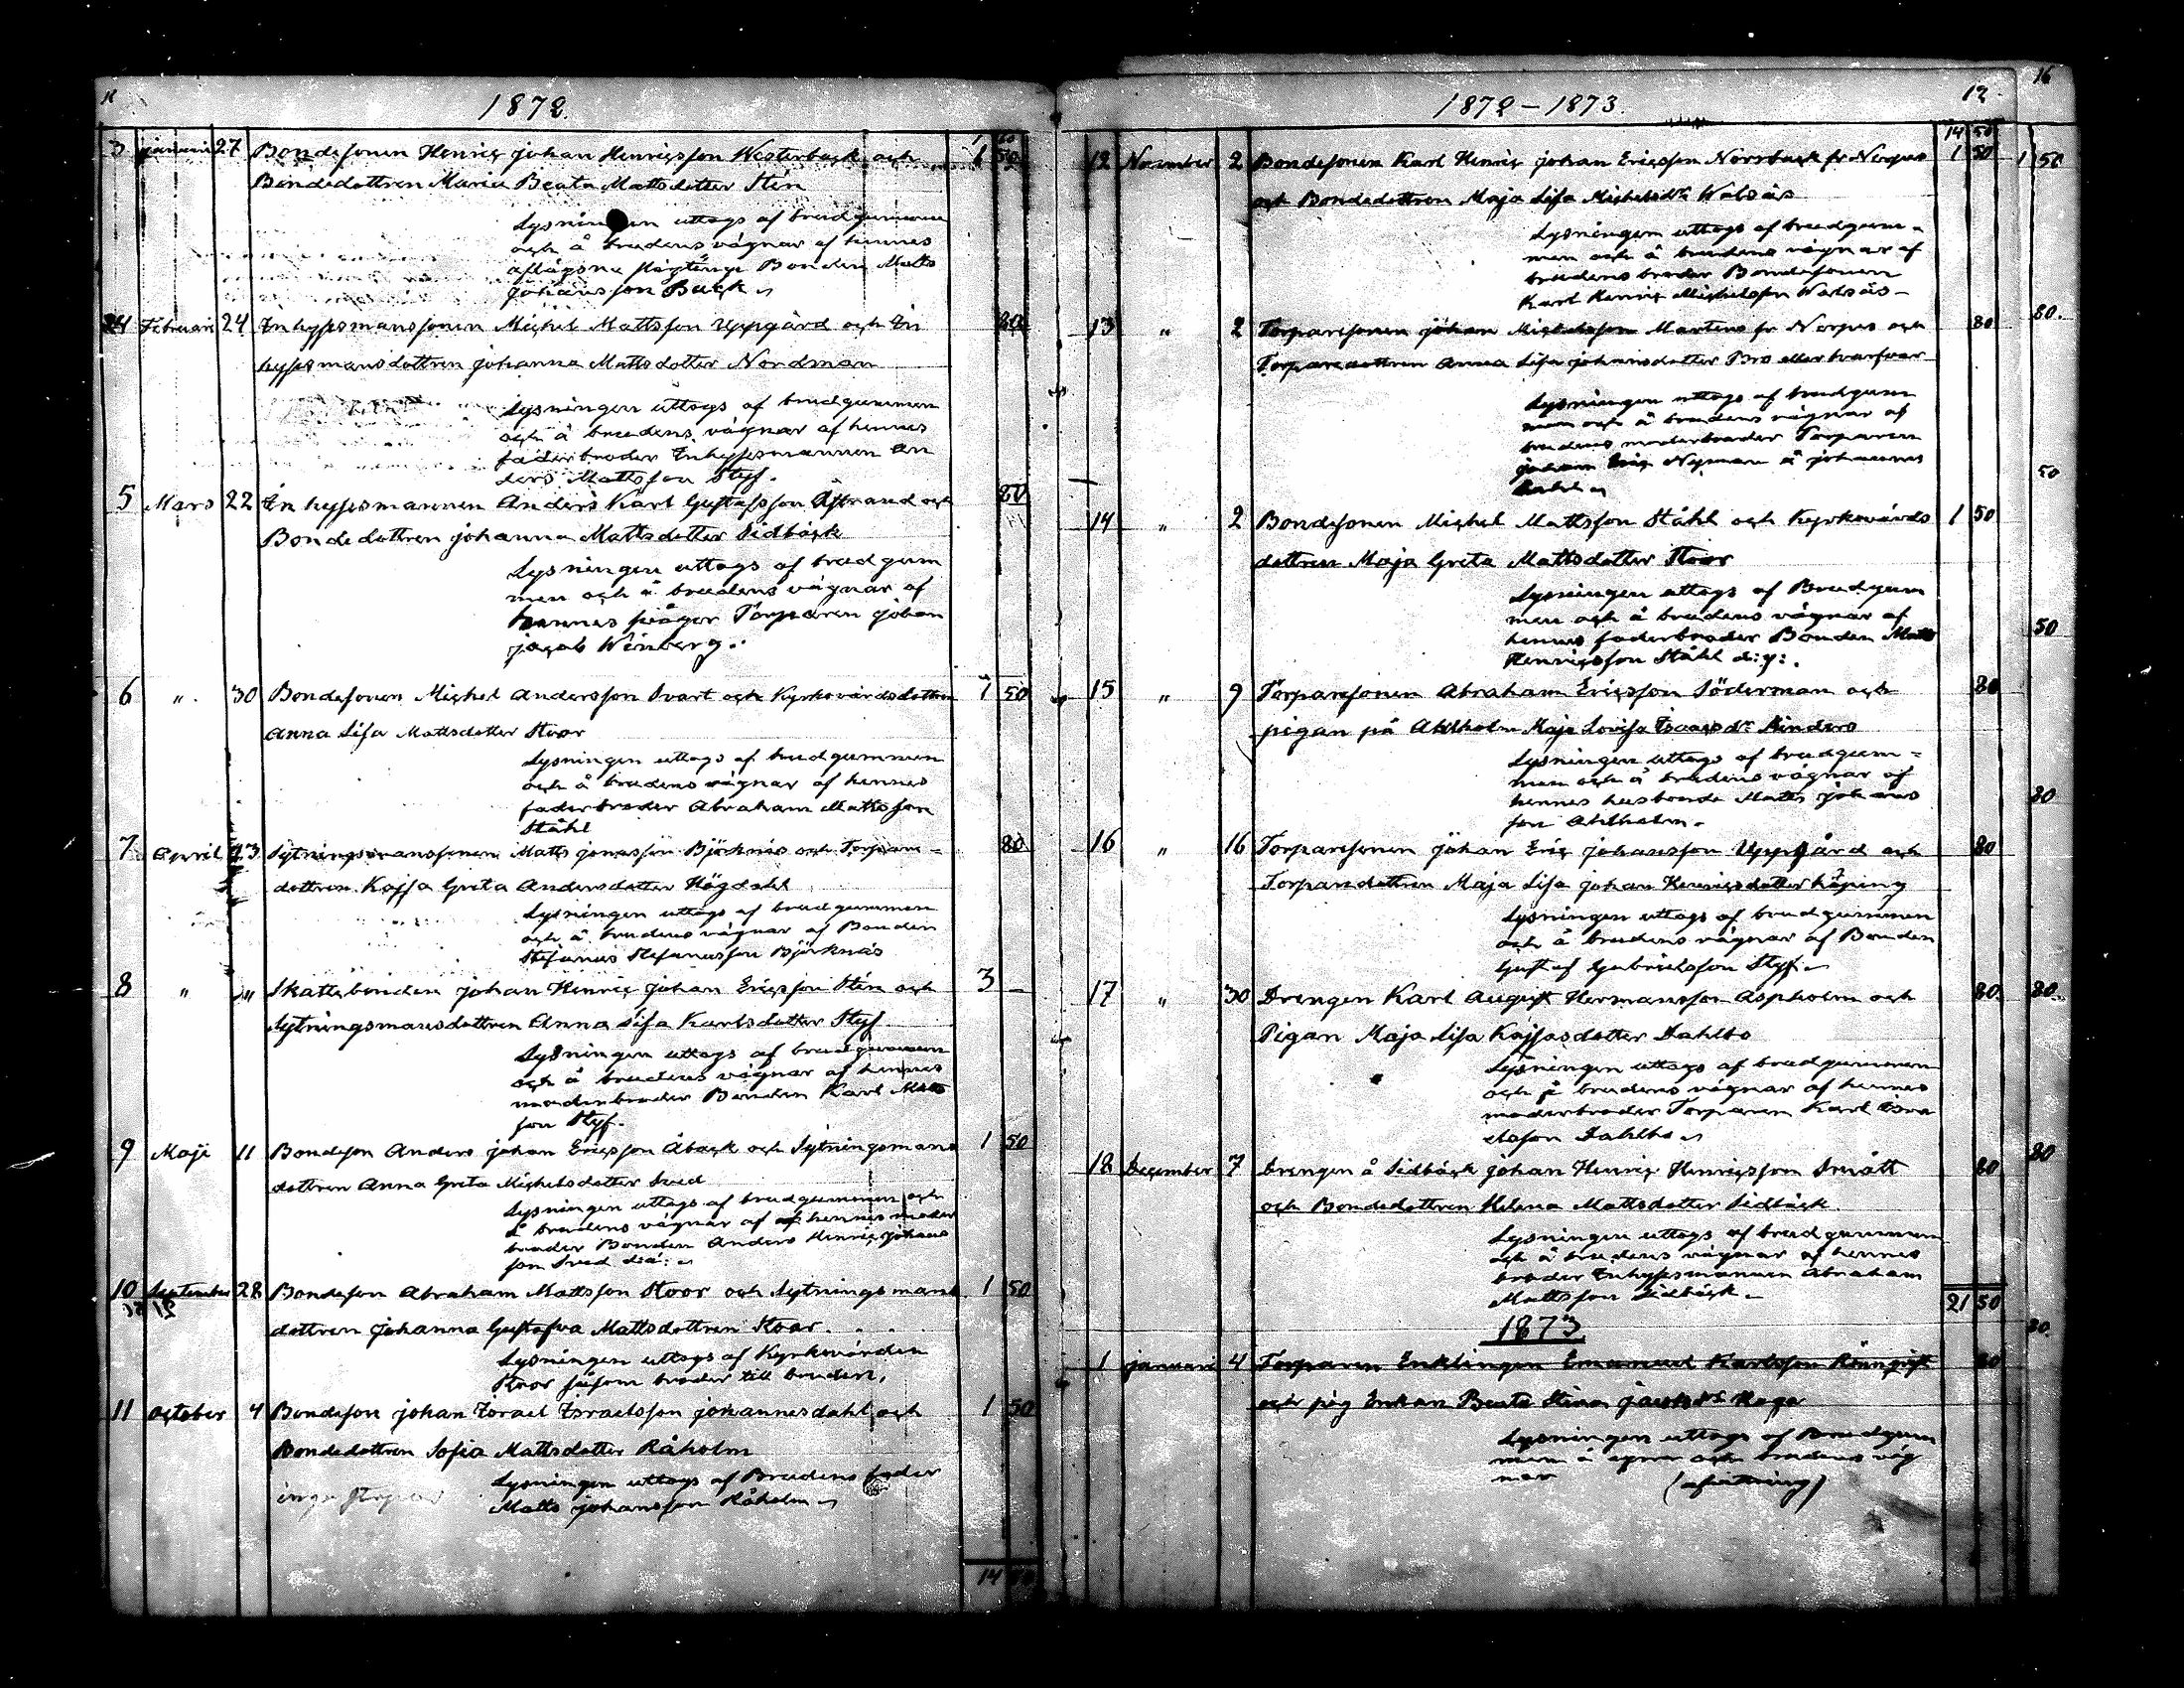 1872.
1 60
3 januari 27 Bondesonen Henric Johan Henricsson Westerback och 1 50
Bondedottren Maria Beata Mattsdotter Sten
Lysningen uttogs af brudgummen
och å brudens vägnar af hennes
aflägsna slägtinge Bonden Matts
Johansson Back
4 Februari 24 Inhysesmanssonen Michel Mattsson Uppgård och In 80
hysesmansdottren Johanna Mattsdotter Nordman
Lysningen uttogs af brudgummen
och å brudens vägnar af hennes
faderbroder Inhysesmannen An
ders Mattsson Styf.
5 Mars 22 Inhysesmannen Anders Karl Gustafsson Åstrand och 80
Bondedottren Johanna Mattsdotter Sidbäck
Lysningen uttogs af brudgum
men och å brudens vägnar af
hennes svåger Torparen Johan
Jacob Wenberg.
6 " 30 Bondesonen Michel Andersson Svart och Kyrkovärdsdottren 1 50
Anna Lisa Mattsdotter Stoor
Lysningen uttogs af brudgummen
och å brudens vägnar af hennes
faderbroder Abraham Mattsson
Ståhl
7 April 13 Sytningsmanssonen Matts Jonasson Björknäs och Torpare- 80
dottren Kajsa Greta Andersdotter Högdahl
Lysningen uttogs af brudgummen
och å brudens vägnar af Bonden
Stefanus Stefanusson Björknäs
8 " " Skattebonden Johan Henric Johan Ericsson Sten och 3 -
Sytningsmansdottren Anna Lisa Karlsdotter Styf.
Lysningen uttogs af brudgummen
och å brudens vägnar af hennes
moderbroder Bonden Karl Matts
son Styf.
9 Maji 11 Bondeson Anders Johan Ericsson Åback och Sytningsmans 1 50
dottren Anna Greta Michelsdotter Sved
Lysningen uttogs af brudgummen och
å brudens vägnar af hennes moder
broder Bonden Anders Henric Johans
son Sved
10 September 28 Bondeson Abraham Mattsson Stoor och Sytningsmans 1 50
dottren Johanna Gustafva Mattsdottren Stoor.
Lysningen uttogs af Kyrkovärden
Stoor såsom broder till bruden.
11 October 4 Bondeson Johan Israel Israelsson Johannesdahl och 1 50
Bondedottren Sofia Mattsdotter Råholm
Lysningen uttogs af Brudens fader
Matts Johansson Råholm
14 50
1872 - 1873.
12
16
14 50
12 November 2 Bondesonen Karl Henric Johan Ericsson Norrback fr Nerpes 1 50
och Bondedottren Maja Lisa Michelsdr Walsås
Lysningen uttogs af brudgum-
men och å brudens vägnar af
brudens broder Bondesonen
Karl Henric Michelsson Walsås
13 " 2 Torparesonen Johan Michelsson Martens fr Nerpes och 80
Torparedottren Anna Lisa Johansdotter Bro eller
Lysningen uttogs af brudgum
men och å brudens vägnar af
brudens moderbroder Torparen
Johan Eric Nyman å Johannes
dahl
14 " 2 Bondesonen Michel Mattsson Ståhl och Kyrkovärds 1 50
dottren Maja Greta Mattsdotter Stoor
Lysningen uttogs af Brudgum
men och å brudens vägnar af
hennes faderbroder Bonden Matts
Henricsson Ståhl d:y:.
15 " 9 Torparesonen Abraham Ericsson Söderman och 80
pigan på Ahlholm Maja Lovisa Isaacsdr Kinders
Lysningen uttogs af brudgum-
men och å brudens vägnar af
hennes husbonde Matts Johans
son Ahlholm.
16 " 16 Torparesonen Johan Eric Johansson Uppgård och 80
Torparedottren Maja Lisa Johan Henricsdotter Köping
Lysningen uttogs af brudgummen
och å brudens vägnar af Bonden
Gustaf Gabrielsson Styf.
17 " 30 Drengen Karl August Hermansson Aspholm och 80
Pigan Maja Lisa Kajsasdotter Dahlbo
Lysningen uttogs af brudgummen
och å brudens vägnar af hennes
moderbroder Torparen Karl Isra
elsson Dahlbo
18 December 7 Drengen å Sidbäck Johan Henric Henricsson Smått 80
och Bondedottren Helena Mattsdotter Sidbäck.
Lysningen uttogs af brudgummen
och å brudens vägnar af hennes
broder Inhysesmannen Abraham
Mattsson Sidbäck.
21 50
1873
1 januari 4 Torparen Enklingen Emanuel Karlsson Rönnqvist 80
och pig Enkan Beata Stina Jacobsdr Haga
Lysningen uttogs af Brudgum
men å egna och brudens väg
nar
1 50
80.
50
50
80
80
80
80